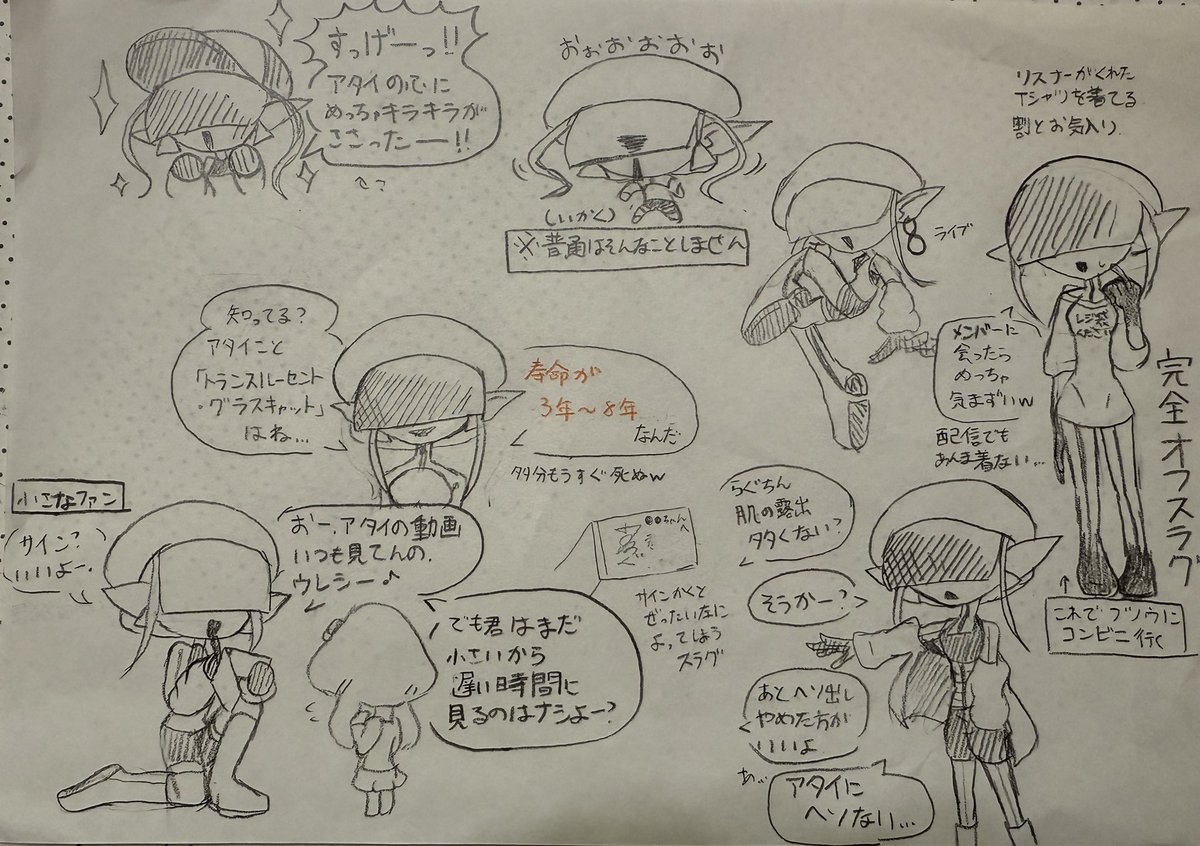 すっげーっ!!
アタイの心に
めっちゃキラキラが
ささったーー!!
おぉおぉおぉ
(いかく)
※普通はそんなことしません
リスナーがくれた
Tシャツを着てる
割とお気入り
ライブ
メンバーに
会ったら
めっちゃ
気まずいw
配信でも
あんま着ない...
完全オフスラグ
これでフツウに
コンビニ行く
知ってる?
アタイこと
「トランスルーセント
・グラスキャット」
はね...
寿命が
3年〜8年
なんだ
多分もうすぐ死ぬw
小さなファン
サイン?
いいよー。
おー、アタイの動画
いつも見てんの、
ウレシー♪
でも君はまだ
小さいから
遅い時間に
見るのはナシよー?
●●ちゃんへ
サインかくと
ぜったい左に
よってしまう
スラグ
らぐちん
肌の露出
多くない?
そうかー?
あとヘソ出し
やめた方が
いいよ
あ...
アタイに
ヘソない...